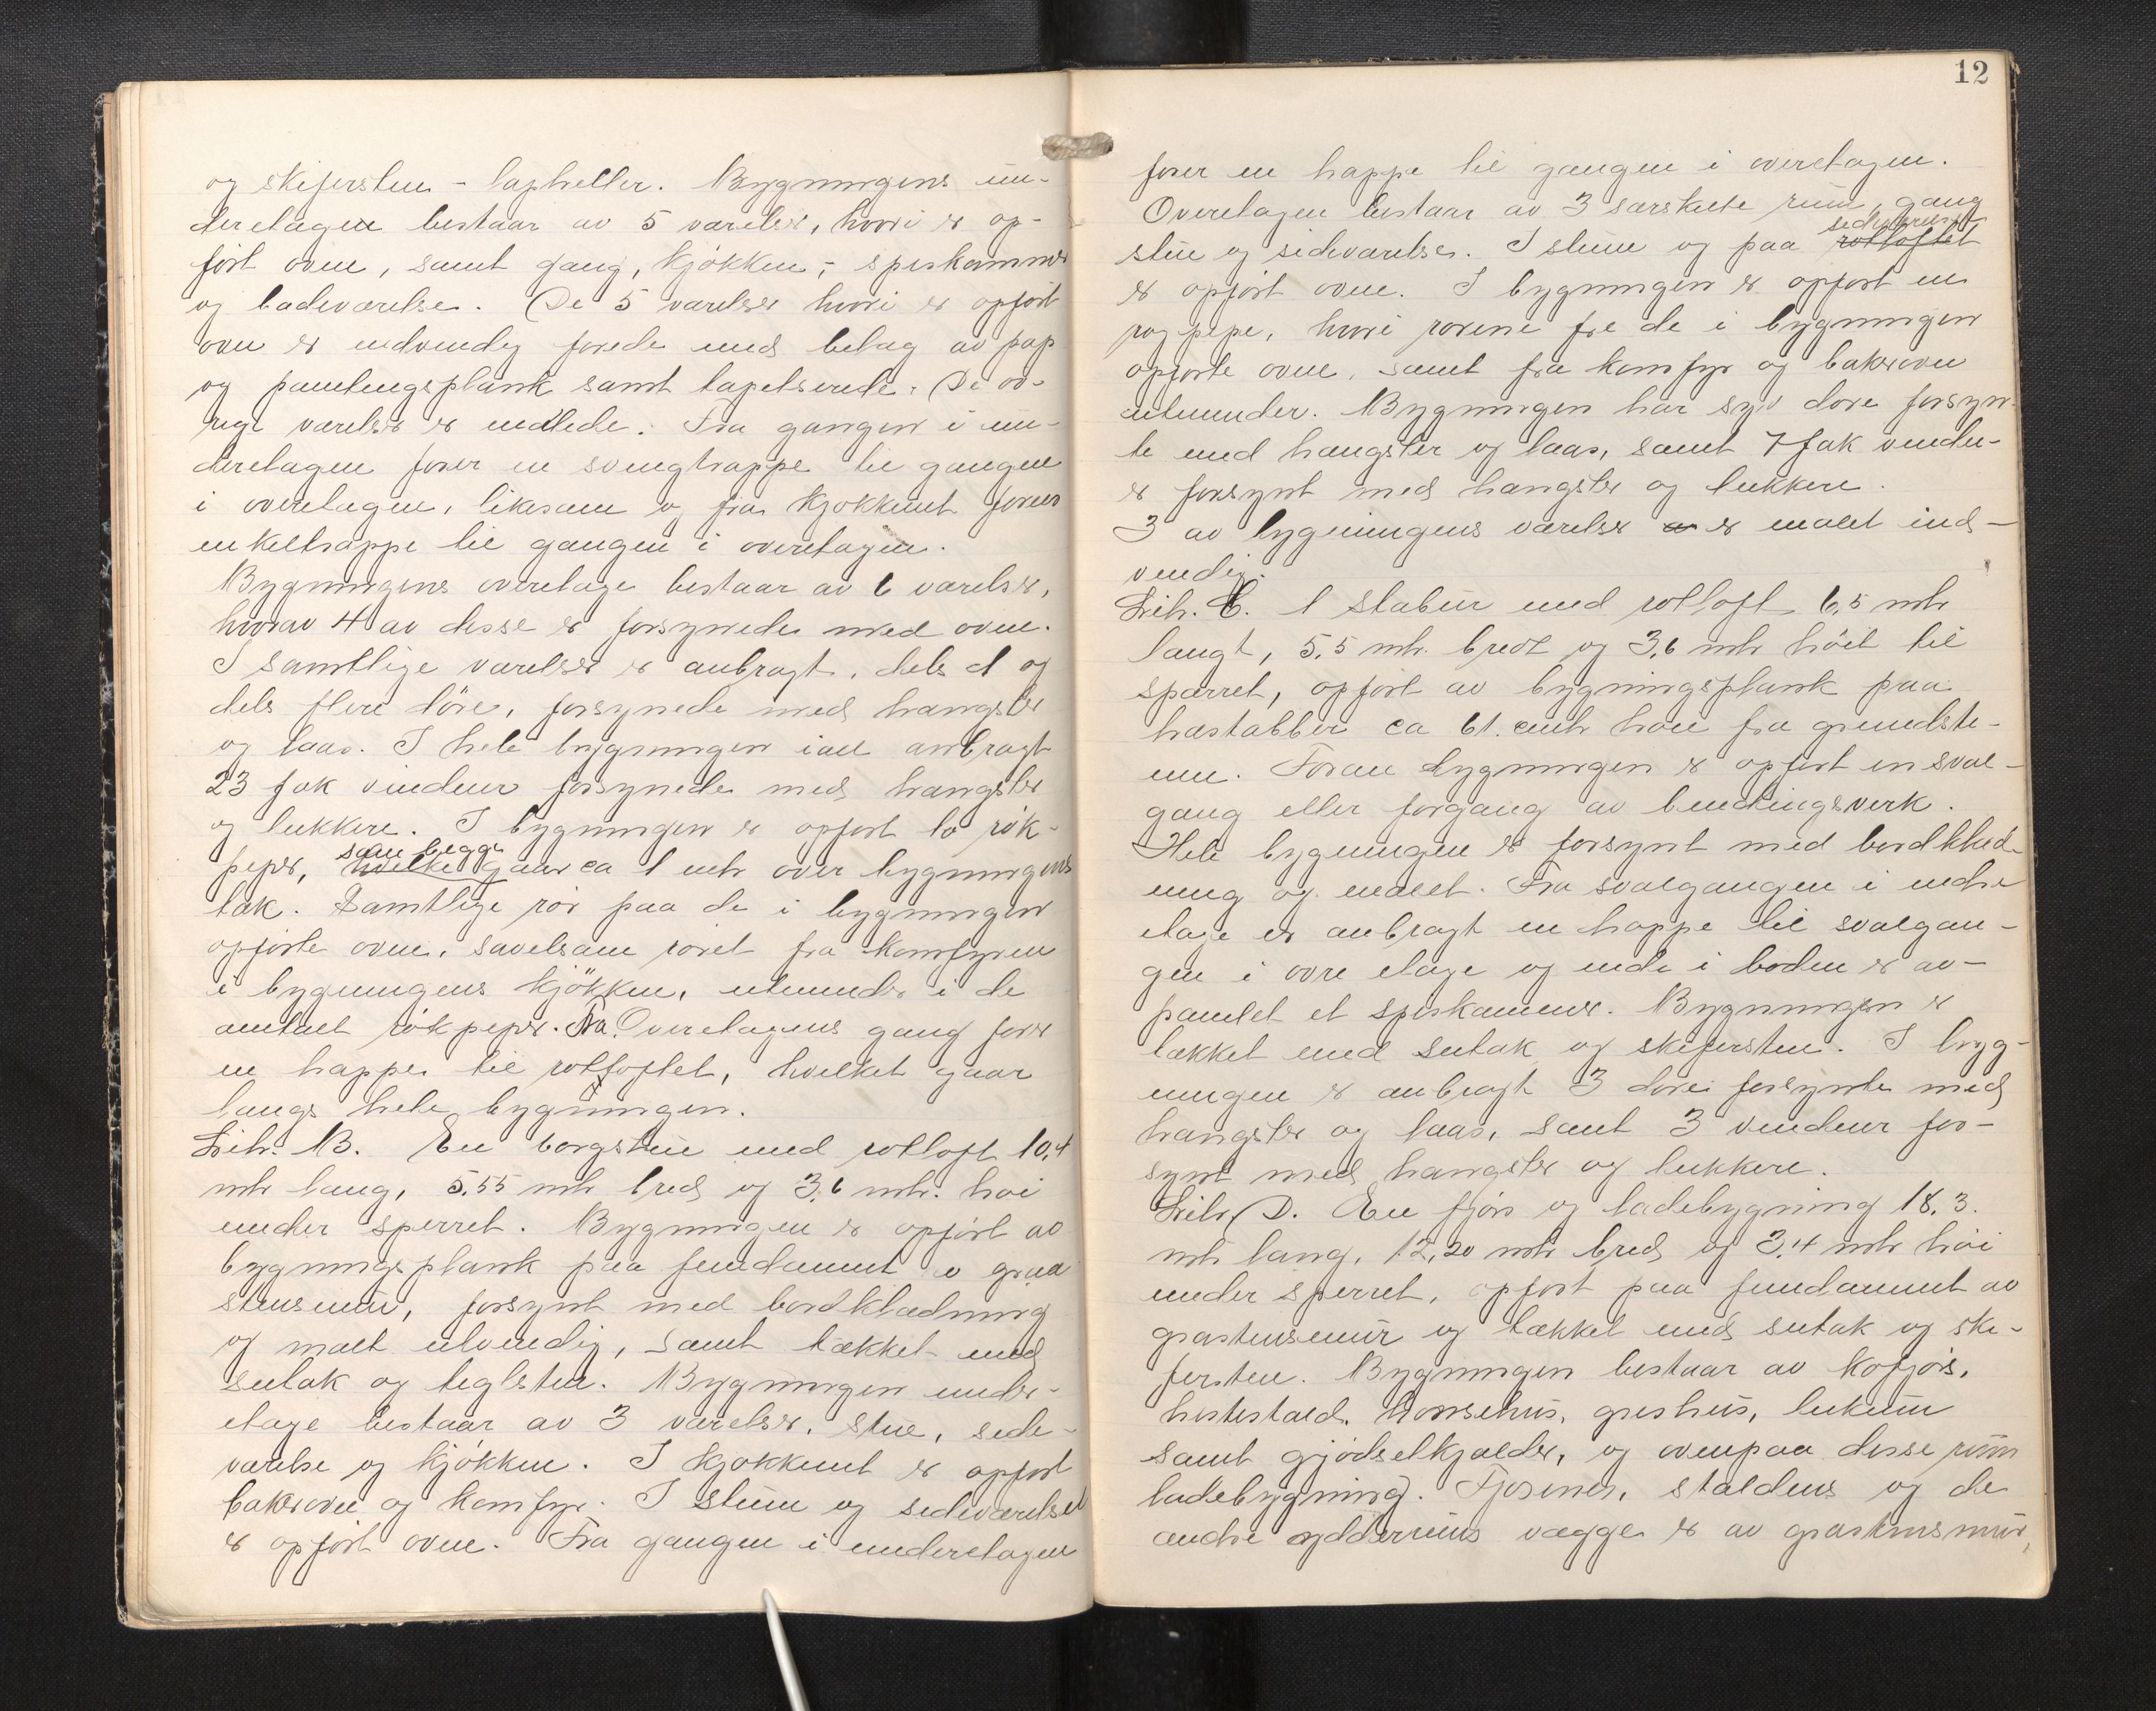 og skifersten - tapheller. Bygningens un-
deretagen bestaar av 5 værelser, hvori er op-
ført ovne, samt gang, kjøkken, spiskammer
og badeværelse. De 5 værelser hvori er opført
ovn er indvendig forede med belag av pap
og panelingsplank samt tapetserede. De øv-
rige værelser er malede. Fra gangen i un-
deretagen fører en svingtrappe til gangen
i overetagen, likesom og fra kjøkkenet fører
enkeltrappe til gangen i overetagen.
Bygningens overetage bestaar av 6 værelser,
hvorav 4 av disse er forsynede med ovne.
I samtlige værelser er anbragt, dels 1 og
dels flere døre, forsynede med hangsler
og laas. I hele bygningen i alt anbragt
23 fak vinduer forsynede med hangsler
og lukkere. I bygningen er opført to røk-
som begge
peper, hvilke gaar ca 1 mtr over bygningens
tak. Samtlige rør paa de i bygningen
opførte ovne, savelsom røret fra komfyren
i bygningens kjøkken, utmunder i de
omtalt røkpeper. Fra Overetagens gang fører
en trappe til rotloftet, hvilket gaar
langs hele bygningen.
Litr. B. En borgstue med rotloft 10,4
mtr lang, 5,55 mtr bred og 3,6 mtr. høi
under sperret. Bygningen er opført av
bygningsplank paa fundament av graa
stensmur, forsynt med bordklædning
og malt utvendig, samt tækket med
sutak og teglsten. Bygningen under-
etage bestaar av 3 værelser, stue, side-
værelse og kjøkken. I kjøkkenet er opført
bakerovn og komfyr. I stuen og sideværelset
er opført ovne. Fra gangen i underetagen
12
fører en trappe til gangen i overetagen.
Overetagen bestaar av 3 særskilte rum, gang
sideværelset
stue og sideværelse. I stuen og paa rotloftet
er opført ovne. I bygningen er opført en
røgpepe, hvori rørene fra de i bygningen
opførte ovne, samt fra komfyr og bakerovn
utmunder. Bygningen har syv døre forsyn-
te med hangsler og laas, samt 7 fak vindu-
er forsynt med hangsler og lukkere.
3 av bygningens værelser er malet ind-
vendig.
Litr. C. 1 Stabur med rotloft 6,5 mtr
langt, 5,5 mtr. bredt og 3,6 mtr høit til
sparret, opført av bygningsplank paa
træstabber ca 61. cmtr høie fra grundste-
nene. Foran bygningen er opført en sval-
gang eller forgang av bindingsverk.
Hele bygningen er forsynt med bordklæd-
ning og malet. Fra svalgangen i nedre
etage er anbragt en trappe til svalgan-
gen i øvre etage og inde i boden er av-
panelet et spiskammer. Bygningen er
tækket med sutak og skifersten. I byg-
ningen er anbragt 3 døre forsynte med
hangsler og laas, samt 3 vinduer for-
synt med hangsler og lukkere.
Litr. D. En fjøs og ladebygning 18,3.
mtr lang, 12,20 mtr bred og 3,4 mtr høi
under sperret, opført paa fundament av
graastensmur og tækket med sutak og ski-
fersten. Bygningen bestaar av kofjøs,
hestestald, hønsehus, grishus,
samt gjødselkjælder, og ovenpaa disse rum
ladebygning. Fjøsenes, staldens og de
andre ydderrums vægge er av graastensmur,